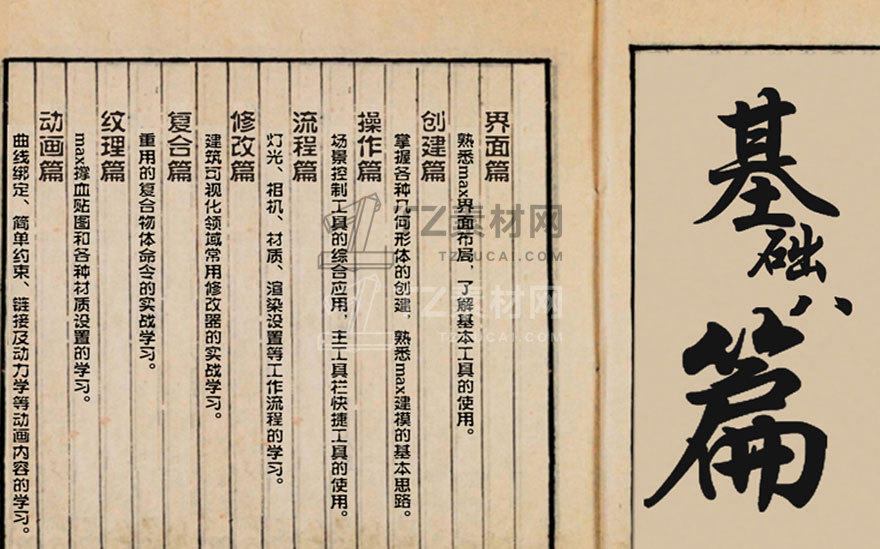 基础八篇
界面篇
熟悉max界面布局，了解基本工具的使用。
创建篇
掌握各种几何形体的创建，熟悉max建摸的基本思路。
操作篇
场景控制工具的综合应用，主工具栏快捷工具的使用。
流程篇
灯光、相机、材质、渲染设置等工作流程的学习。
修改篇
建筑可视化领域常用修改器的实战学习。
复合篇
重用的复合物体命令的实战学习。
纹理篇
max撑血贴图和各种材质设置的学习。
动画篇
曲线绑定、简单约束、链接及动力学等动画内容的学习。
TZ素材网
TZSUCAI.COM
TZ素材网
TZSUCAI.COM